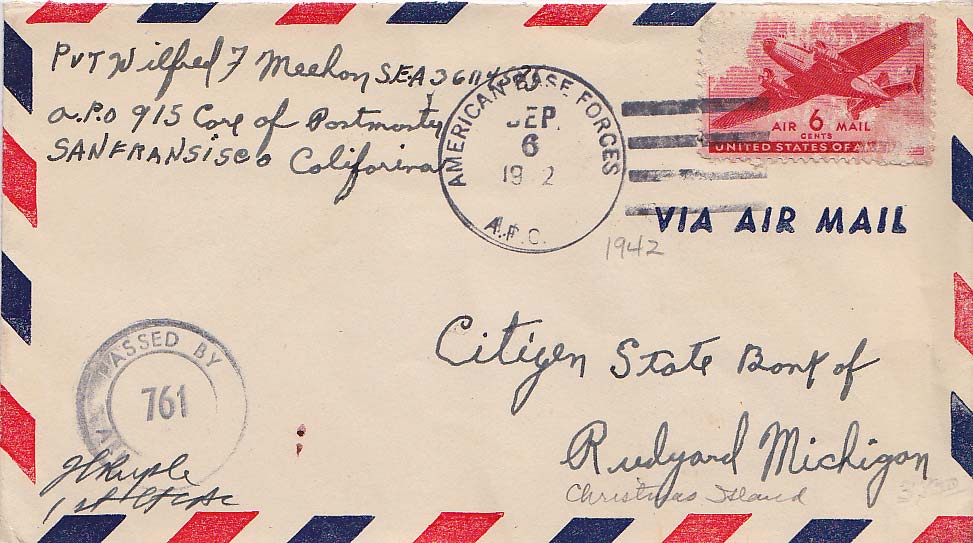 Pvt Wilfred F Meehon S.E.A
a.P.O 915 Care of Postmosty
SANFRANSISCO Califorina
AMERICAN BASE FORCES
SEP.
6
19 2
A.P.O.
AIR 6 MAIL
CENTS
UNITED STATES OF AMERICA
VIA AIR MAIL
1942
PASSED BY
761
Citizen State Bank of
Rudyard Michigan
Christmas Island
1st Lt